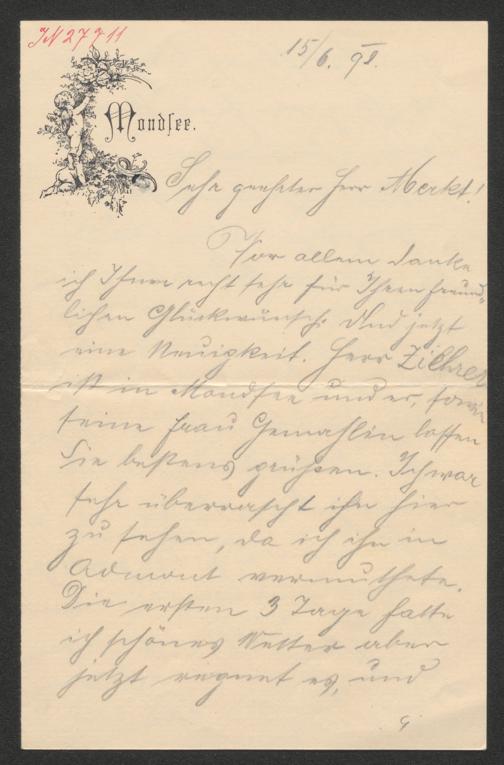 IN 27711
15/6. 98.
Mondsee.
Sehr geehrter Herr Merkt!
Vor allem danke
ich Ihnen recht sehr für Ihren freund-
lichen Glückwunsch. Und jetzt
eine Neuigkeit. Herr Ziehrer
ist in Mondsee und er, sowie
seine Frau Gemahlin lassen
Sie bestens grüßen. Ich war
sehr überrascht ihn hier
zu sehen, da ich ihn in
Admont vermuthete.
Die ersten 3 Tage hatte
ich schönes Wetter aber
jetzt regnet es, und